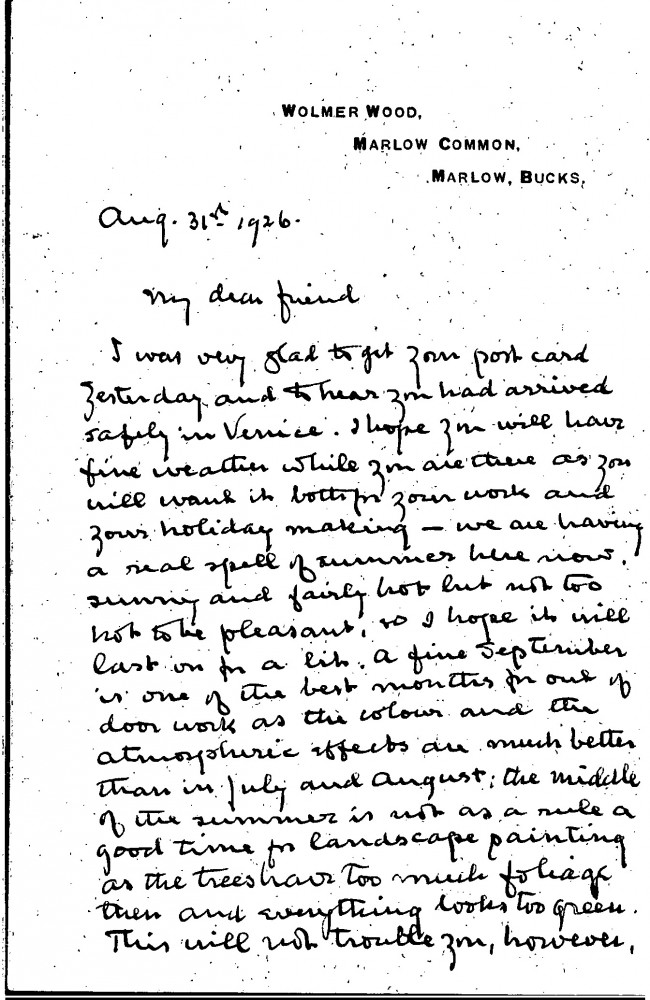 WOLMER WOOD,
MARLOW COMMON,
MARLOW, BUCKS.
Aug. 31st 1926.
My dear friend
I was very glad to get your post card
yesterday and to hear you had arrived
safely in Venice. I hope you will have
fine weather while you are there as you
will want it both for your work and
your holiday making — we are having
a real spell of summer here now,
sunny and fairly hot but not too
hot to be pleasant, so I hope it will
last on for a bit. A fine September
is one of the best months for out of
door work as the colour and the
atmospheric effects are much better
than in July and August; the middle
of the summer is not as a rule a
good time for landscape painting
as the trees have too much foliage
then and everything looks too green.
This will not trouble you, however,